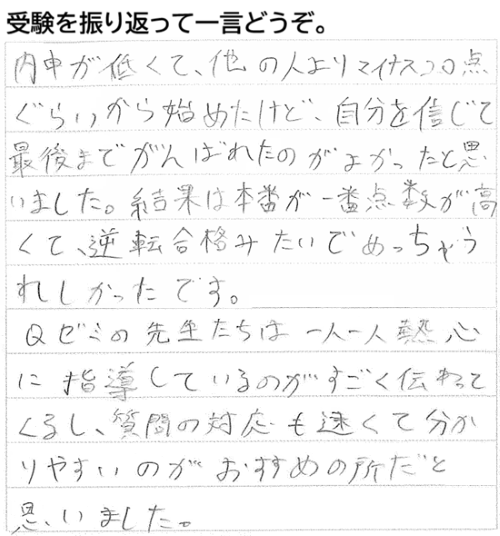 受験を振り返って一言どうぞ。
内申が低くて、他の人よりマイナス20点
ぐらいから始めたけど、自分を信じて
最後までがんばれたのがよかったと思
いました。結果は本番が一番点数が高
くて、逆転合格みたいでめっちゃう
れしかったです。
Qゼミの先生たちは一人一人熱心
に指導しているのがすごく伝わって
くるし、質問の対応も速くて分か
りやすいのがおすすめの所だと
思いました。